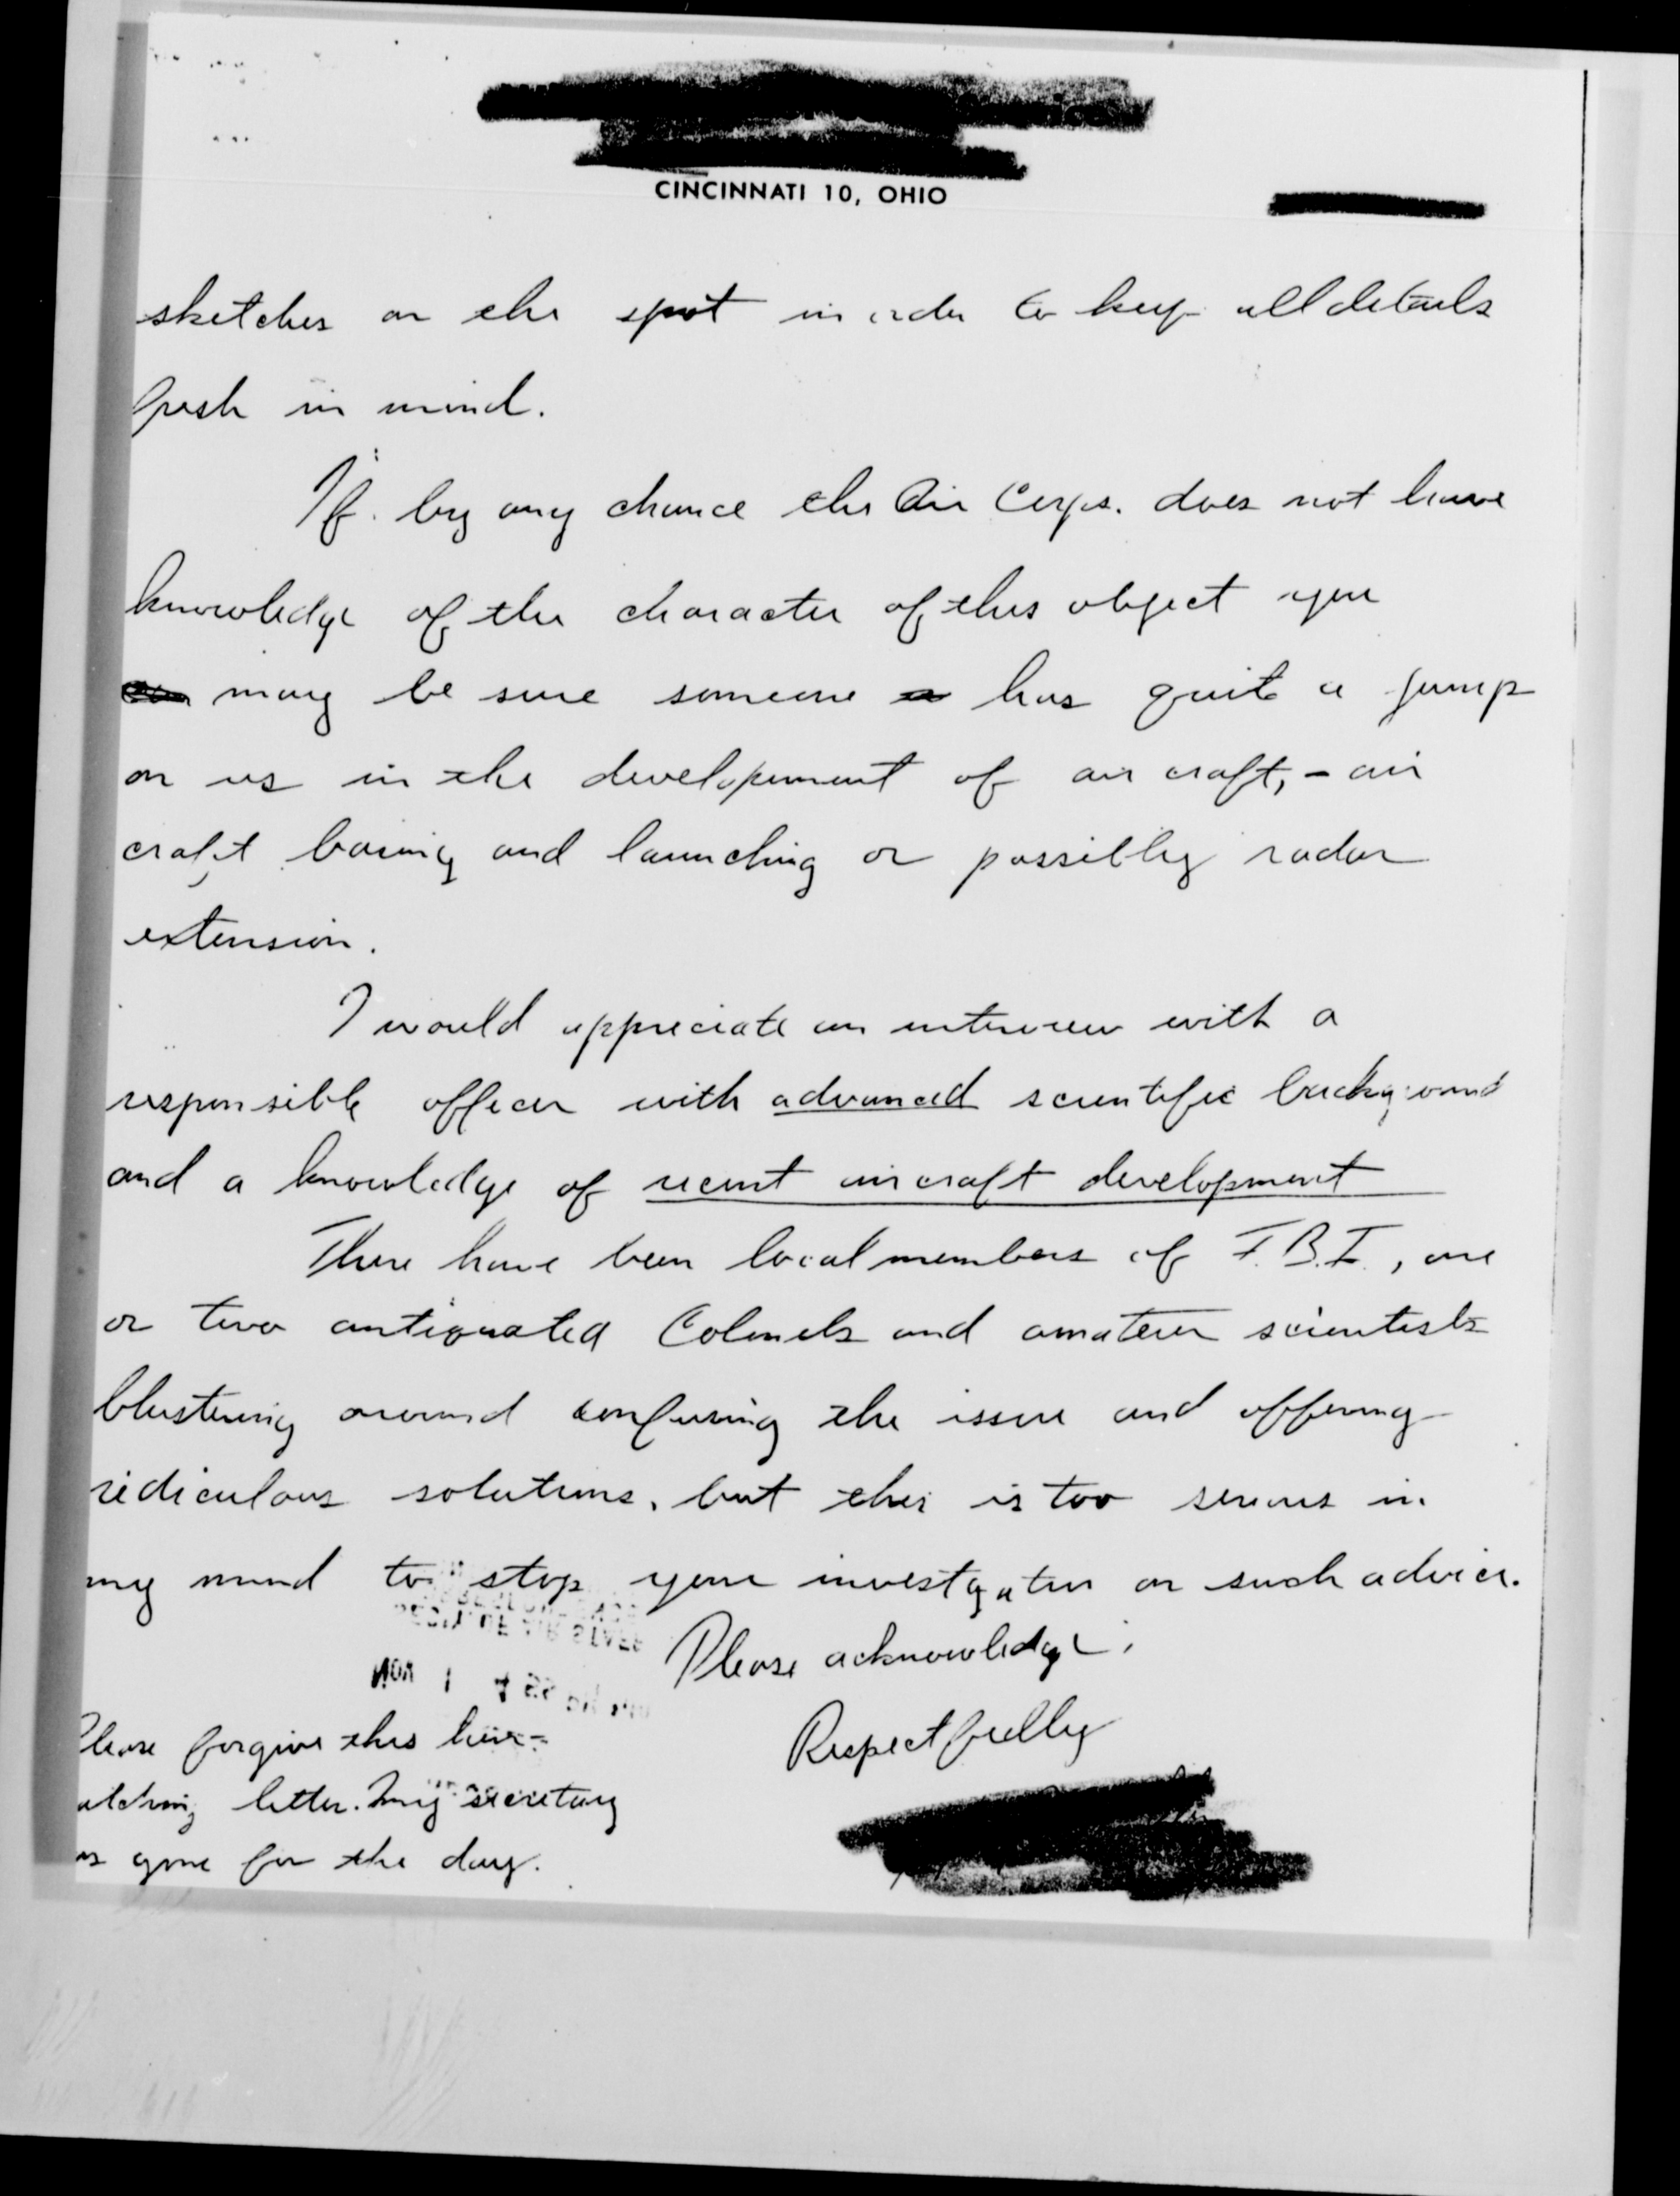 CINCINNATI 10, OHIO
sketches on the spot in order to keep all details
fresh in mind.
If by any chance the Air Corps. does not have
knowledge of the character of this object you
may be sure someone has quite a jump
on us in the development of air craft, - air
craft basing and launching or possibly radar
extension.
I would appreciate an interview with a
responsible officer with advanced scientific background
and a knowledge of recent aircraft development
There have been local members of F.B.I., one
or two antiquated Colonels and amateur scientists
blustering around confusing the issue and offering
ridiculous solutions, but this is too serious in
my mind to stop your investigation on such advice.
Please acknowledge.
Respectfully
Please forgive this
letter. My secretary
is gone for the day.